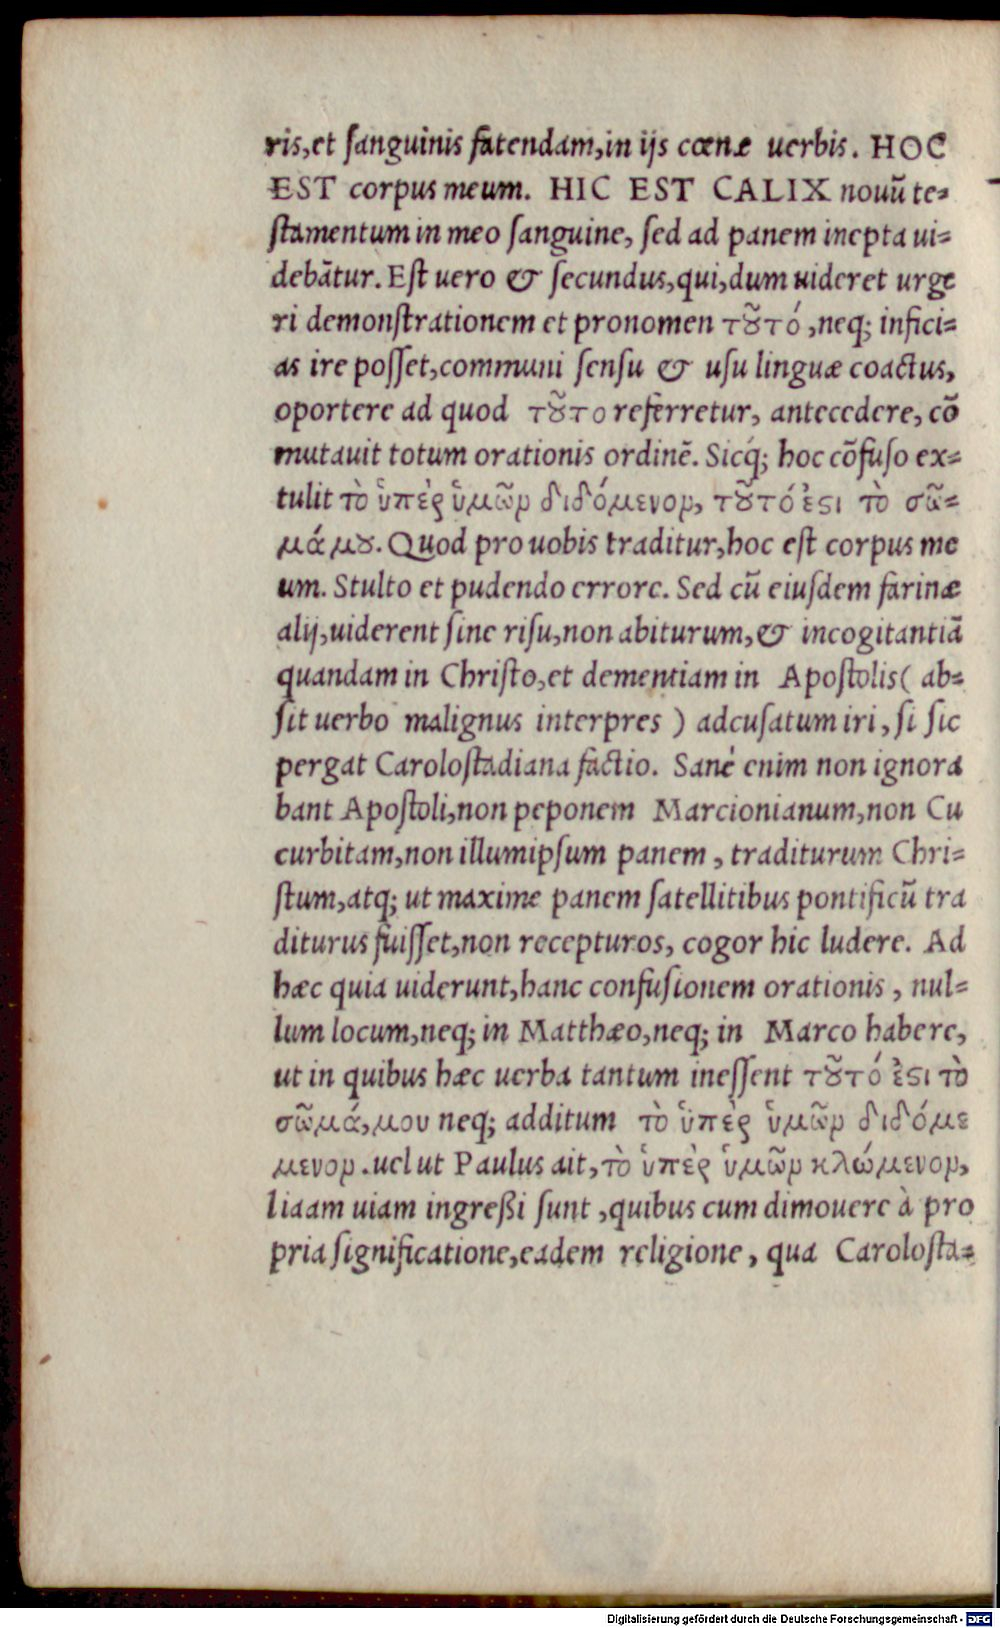 ris,et ſanguinis fatendam,in ijs cœnæ uerbis. HOC
EST corpus meum. HIC EST CALIX nouū te=
ſtamentum in meo ſanguine, ſed ad panem inepta ui=
debātur. Eſt uero & ſecundus,qui,dum uideret urge
ri demonſtrationem et pronomen τȣ͂τό ,neq; infici=
as ire poſſet,communi ſenſu & uſu linguæ coactus,
oportere ad quod τȣ͂το referretur, antecedere, cō
mutauit totum orationis ordinē. Sicq́; hoc cōfuſo ex=
tulit τὸ ὑπὲρ ὑμῶν διδόμενον, τȣ͂τό ἐϛι τὸ σῶ=
μά μȣ. Quod pro uobis traditur,hoc eſt corpus me
um. Stulto et pudendo errore. Sed cū eiuſdem farinæ
alij,uiderent ſine riſu,non abiturum,& incogitantiā
quandam in Chriſto,et dementiam in Apoſtolis( ab=
ſit uerbo malignus interpres ) adcuſatum iri, ſi ſic
pergat Caroloſtadiana factio. Sanè enim non ignora
bant Apoſtoli,non peponem Marcionianum,non Cu
curbitam,non illumipſum panem , traditurum Chri=
ſtum,atq; ut maxime panem ſatellitibus pontificū tra
diturus fuiſſet,non recepturos, cogor hic ludere. Ad
hæc quia uiderunt,hanc confuſionem orationis , nul=
lum locum,neq; in Matthæo,neq; in Marco habere,
ut in quibus hæc uerba tantum ineſſent τȣ͂τό ἐϛι τὸ
σῶμά,μου neq; additum τὸ ὑπὲρ ὑμῶν διδόμε
μενον .uel ut Paulus ait,τὸ ὑπὲρ ὑμῶν κλώμενον,
liaam uiam ingreßi ſunt ,quibus cum dimouere à pro
pria ſignificatione,eadem religione , qua Caroloſta=
Digitalisierung gefördert durch die Deutsche Forschungsgemeinschaft - DFG